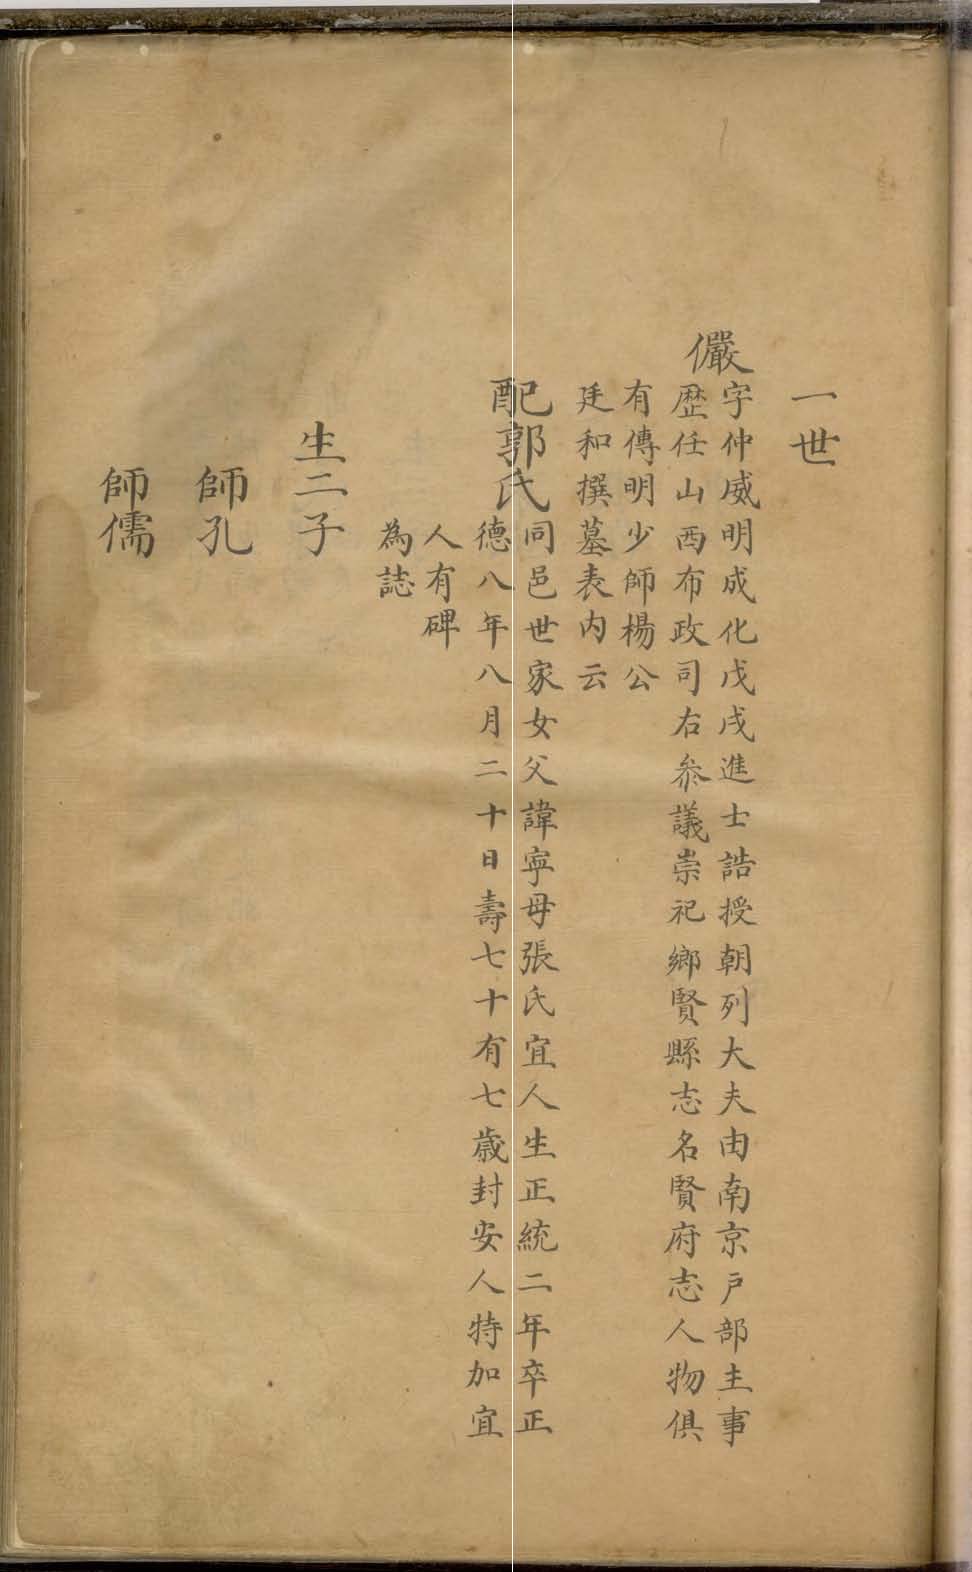 一世
儼
字仲威明成化戊戌進士誥授朝列大夫由南京戶部主事
歴任山西布政司右叅議崇祀鄉賢縣志名賢府志人物俱
有傳明少師楊公
廷和撰墓表内云
配郭氏
同邑世家女父諱寜母張氏宜人生正統二年卒正
德八年八月二十日壽七十有七歳封安人特加宜
人有碑
為誌
生二子
師孔
師儒